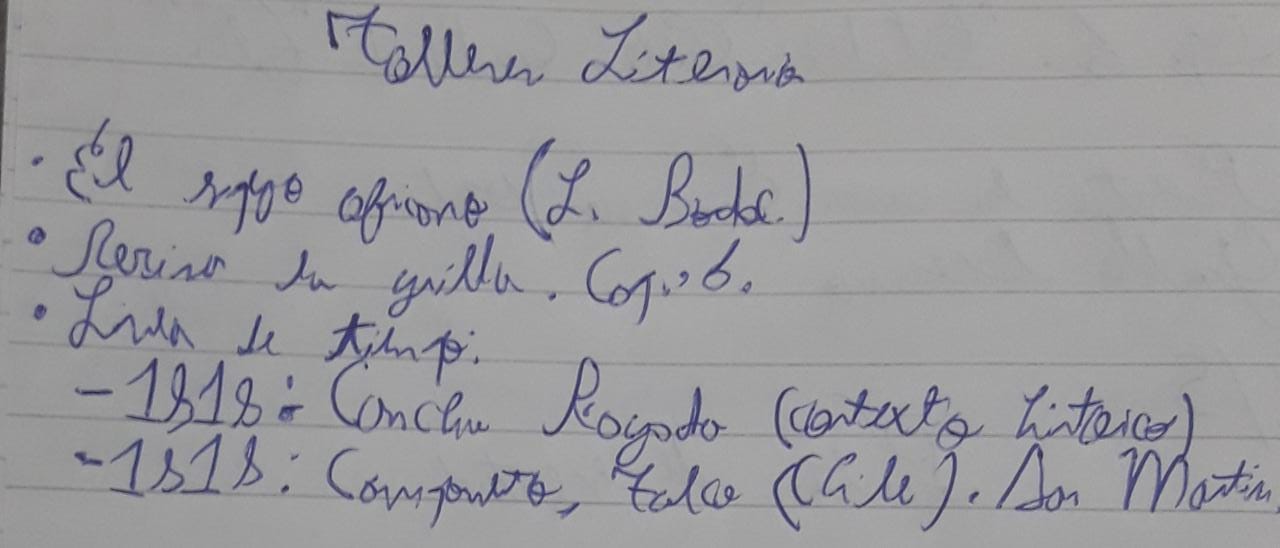 Taller Literario
• El rojo africano (L. Bodoc.)
• Revisar la grilla. Cap. 6.
• Línea de tiempo.
- 1818: Cancha Rayada (contexto histórico)
- 1818: Campamento, Talca (Chile). San Martín,